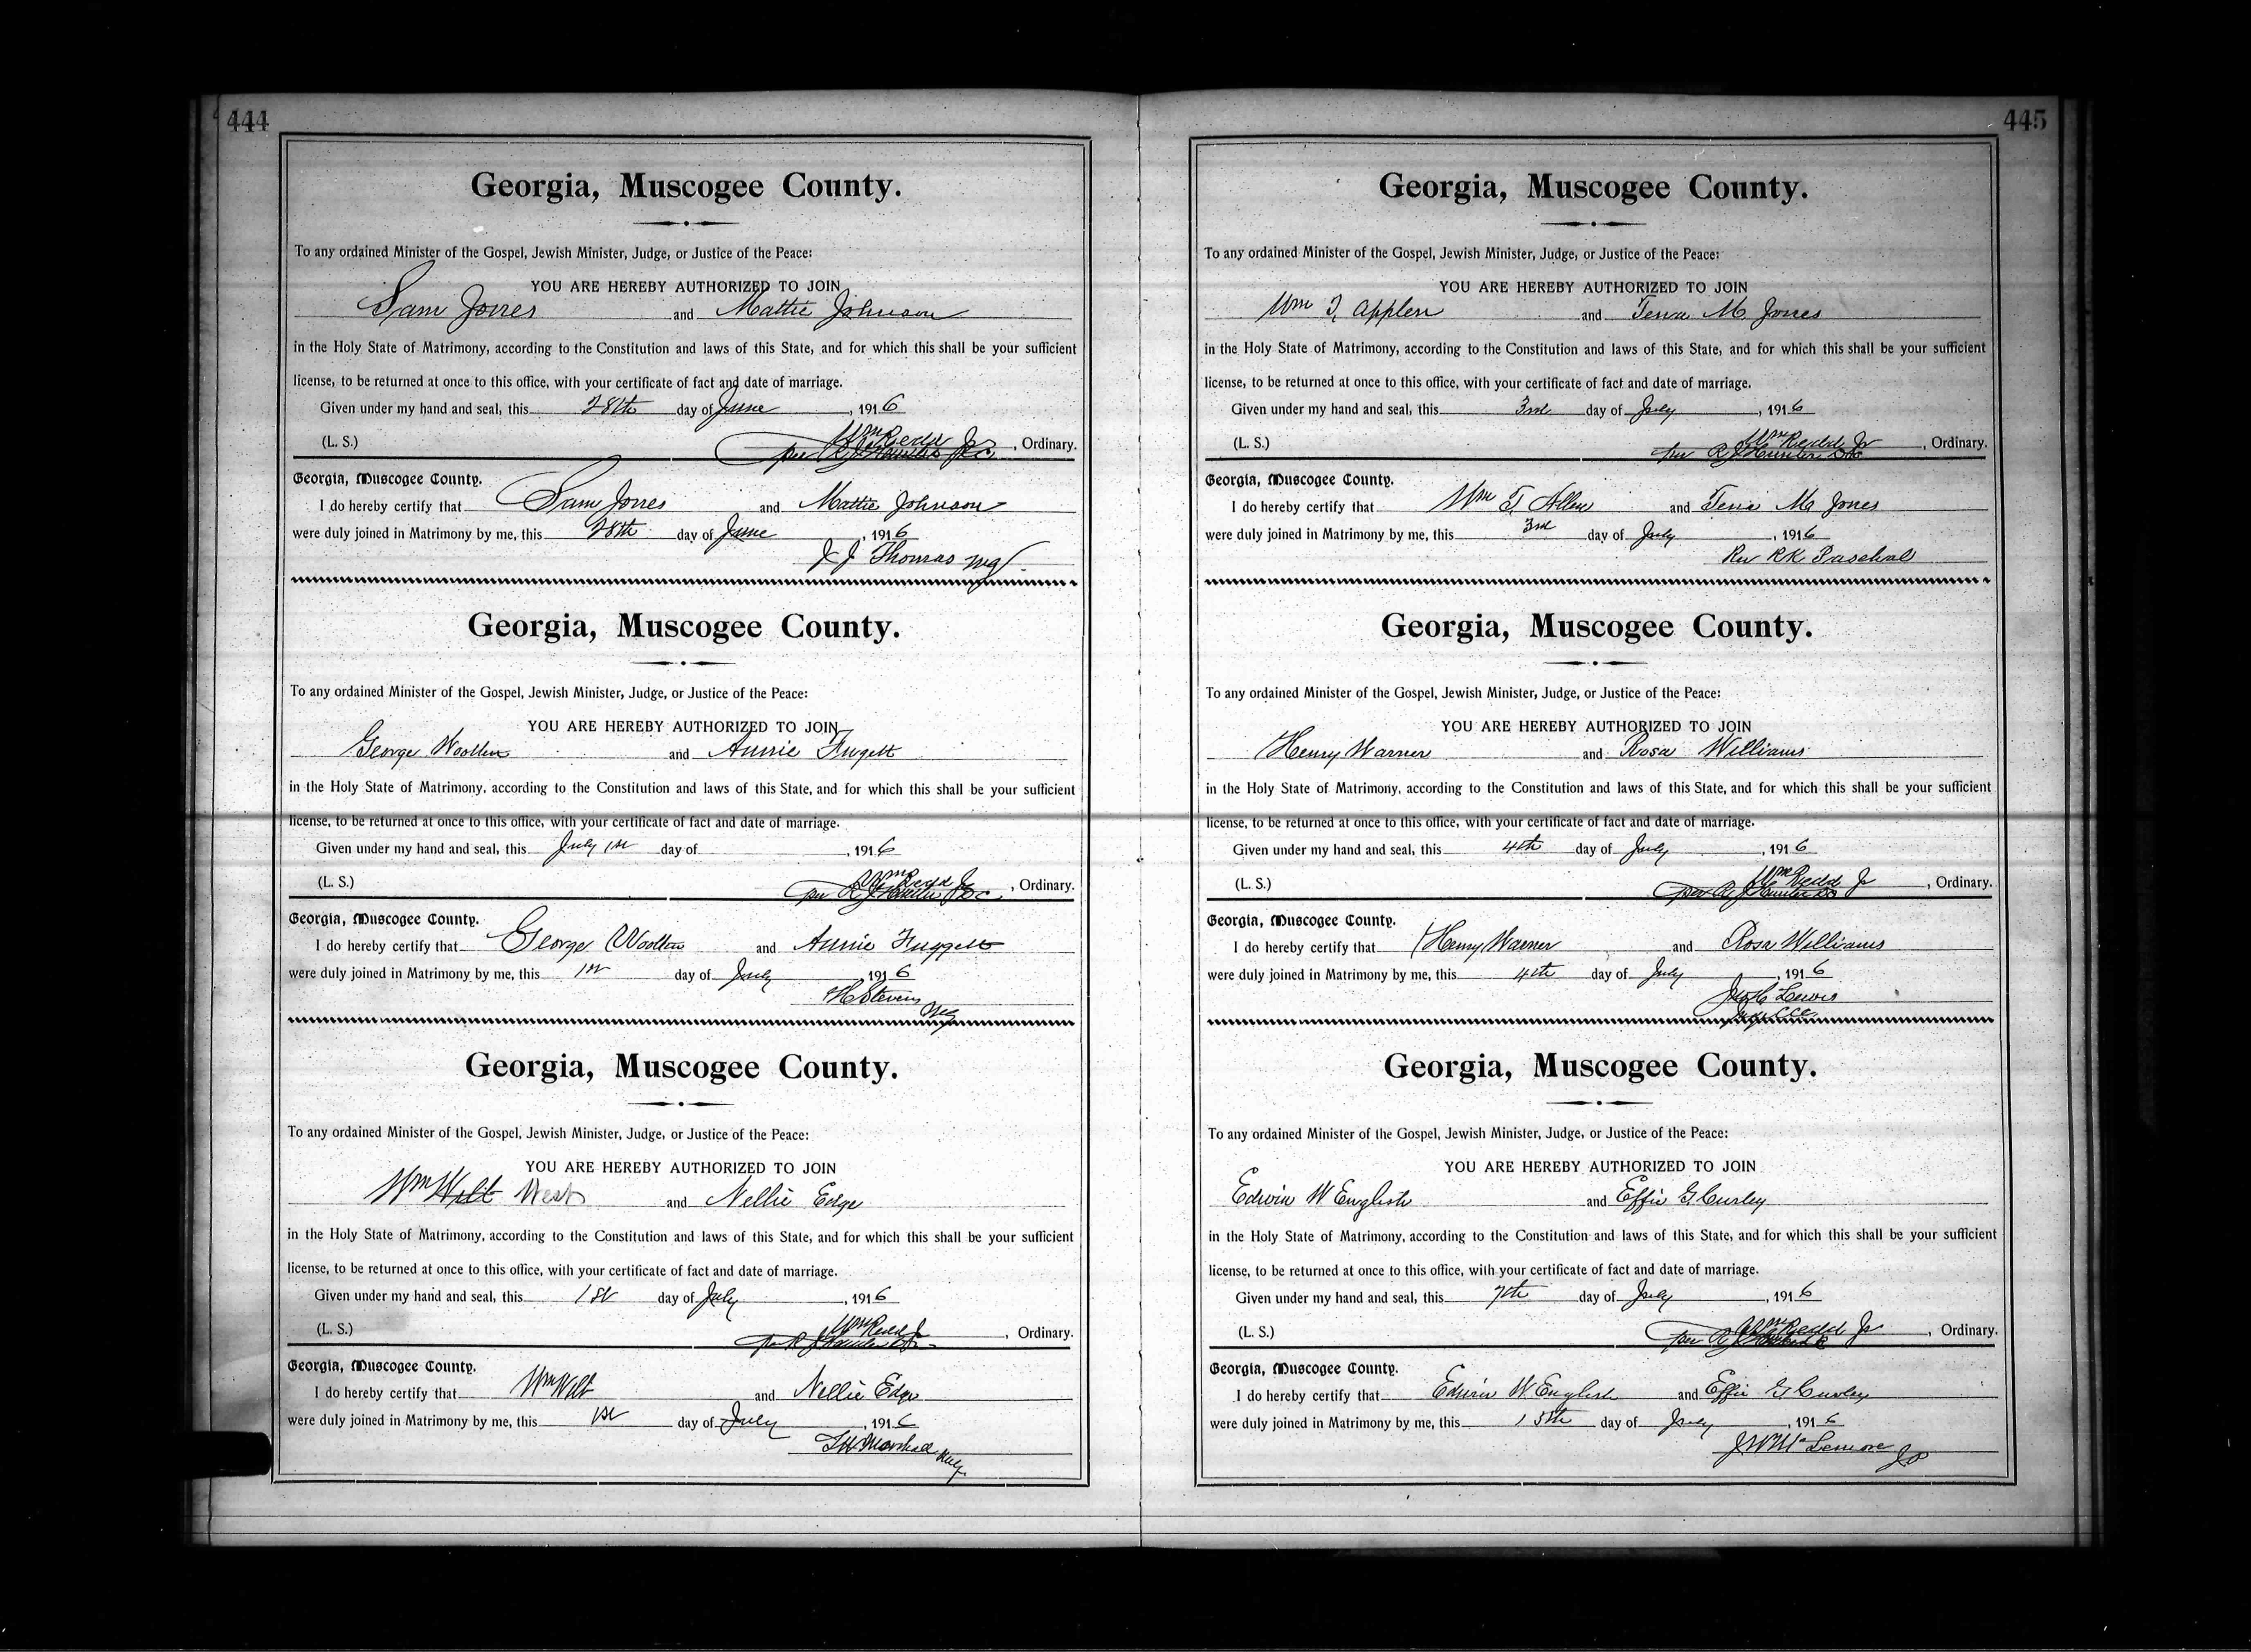 444
Georgia, Muscogee County.
To any ordained Minister of the Gospel, Jewish Minister, Judge, or Justice of the Peace:
YOU ARE HEREBY AUTHORIZED TO JOIN
Sam Jones and Mattie Johnson
in the Holy State of Matrimony, according to the Constitution and laws of this State, and for which this shall be your sufficient
license, to be returned at once to this office, with your certificate of fact and date of marriage.
Given under my hand and seal, this 28th day of June, 1916
(L. S.) Wm Redd Jr, Ordinary.
per R J Hunter
Georgia, Muscogee County.
I do hereby certify that Sam Jones and Mattie Johnson
were duly joined in Matrimony by me, this 28th day of June, 1916
J Thomas mg
Georgia, Muscogee County.
To any ordained Minister of the Gospel, Jewish Minister, Judge, or Justice of the Peace:
YOU ARE HEREBY AUTHORIZED TO JOIN
George Woolten and Annie Fugett
in the Holy State of Matrimony, according to the Constitution and laws of this State, and for which this shall be your sufficient
license, to be returned at once to this office, with your certificate of fact and date of marriage.
Given under my hand and seal, this July 1st day of , 1916
(L. S.) Wm Redd Jr, Ordinary.
per R J Hunter
Georgia, Muscogee County.
I do hereby certify that George Woolten and Annie Fuggett
were duly joined in Matrimony by me, this 1st day of July, 1916
Stevens
Mg
Georgia, Muscogee County.
To any ordained Minister of the Gospel, Jewish Minister, Judge, or Justice of the Peace:
YOU ARE HEREBY AUTHORIZED TO JOIN
Wm Wilt West and Nellie Edge
in the Holy State of Matrimony, according to the Constitution and laws of this State, and for which this shall be your sufficient
license, to be returned at once to this office, with your certificate of fact and date of marriage.
Given under my hand and seal, this 1st day of July, 1916
(L. S.) Wm Redd Jr, Ordinary.
per R J Hunter
Georgia, Muscogee County.
I do hereby certify that Wm Wilt and Nellie Edge
were duly joined in Matrimony by me, this 1st day of July, 1916
Marshall
445
Georgia, Muscogee County.
To any ordained Minister of the Gospel, Jewish Minister, Judge, or Justice of the Peace:
YOU ARE HEREBY AUTHORIZED TO JOIN
Wm T, Applen and Tena M Jones
in the Holy State of Matrimony, according to the Constitution and laws of this State, and for which this shall be your sufficient
license, to be returned at once to this office, with your certificate of fact and date of marriage.
Given under my hand and seal, this 3rd day of July, 1916
(L. S.) Wm Redd Jr, Ordinary.
per R J Hunter
Georgia, Muscogee County.
I do hereby certify that Wm T, Allen and Tena M Jones
were duly joined in Matrimony by me, this 3rd day of July, 1916
Rev RK Paschal
Georgia, Muscogee County.
To any ordained Minister of the Gospel, Jewish Minister, Judge, or Justice of the Peace:
YOU ARE HEREBY AUTHORIZED TO JOIN
Henry Warner and Rosa Williams
in the Holy State of Matrimony, according to the Constitution and laws of this State, and for which this shall be your sufficient
license, to be returned at once to this office, with your certificate of fact and date of marriage.
Given under my hand and seal, this 4th day of July, 1916
(L. S.) Wm Redd Jr, Ordinary.
per R J Hunter
Georgia, Muscogee County.
I do hereby certify that Henry Warner and Rosa Williams
were duly joined in Matrimony by me, this 4th day of July, 1916
Lewis
Georgia, Muscogee County.
To any ordained Minister of the Gospel, Jewish Minister, Judge, or Justice of the Peace:
YOU ARE HEREBY AUTHORIZED TO JOIN
Edwin W English and Effie G Curley
in the Holy State of Matrimony, according to the Constitution and laws of this State, and for which this shall be your sufficient
license, to be returned at once to this office, with your certificate of fact and date of marriage.
Given under my hand and seal, this 7th day of July, 1916
(L. S.) Wm Redd Jr, Ordinary.
per R J
Georgia, Muscogee County.
I do hereby certify that Edwin W English and Effie G Curley
were duly joined in Matrimony by me, this 15th day of July, 1916
JW McLemore JP